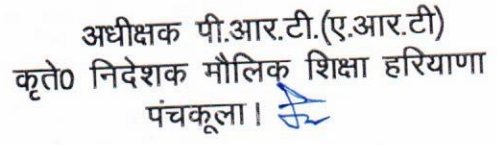 अधीक्षक पी.आर.टी.(ए.आर.टी)
कृते0 निदेशक मौलिक शिक्षा हरियाणा
पंचकूला।